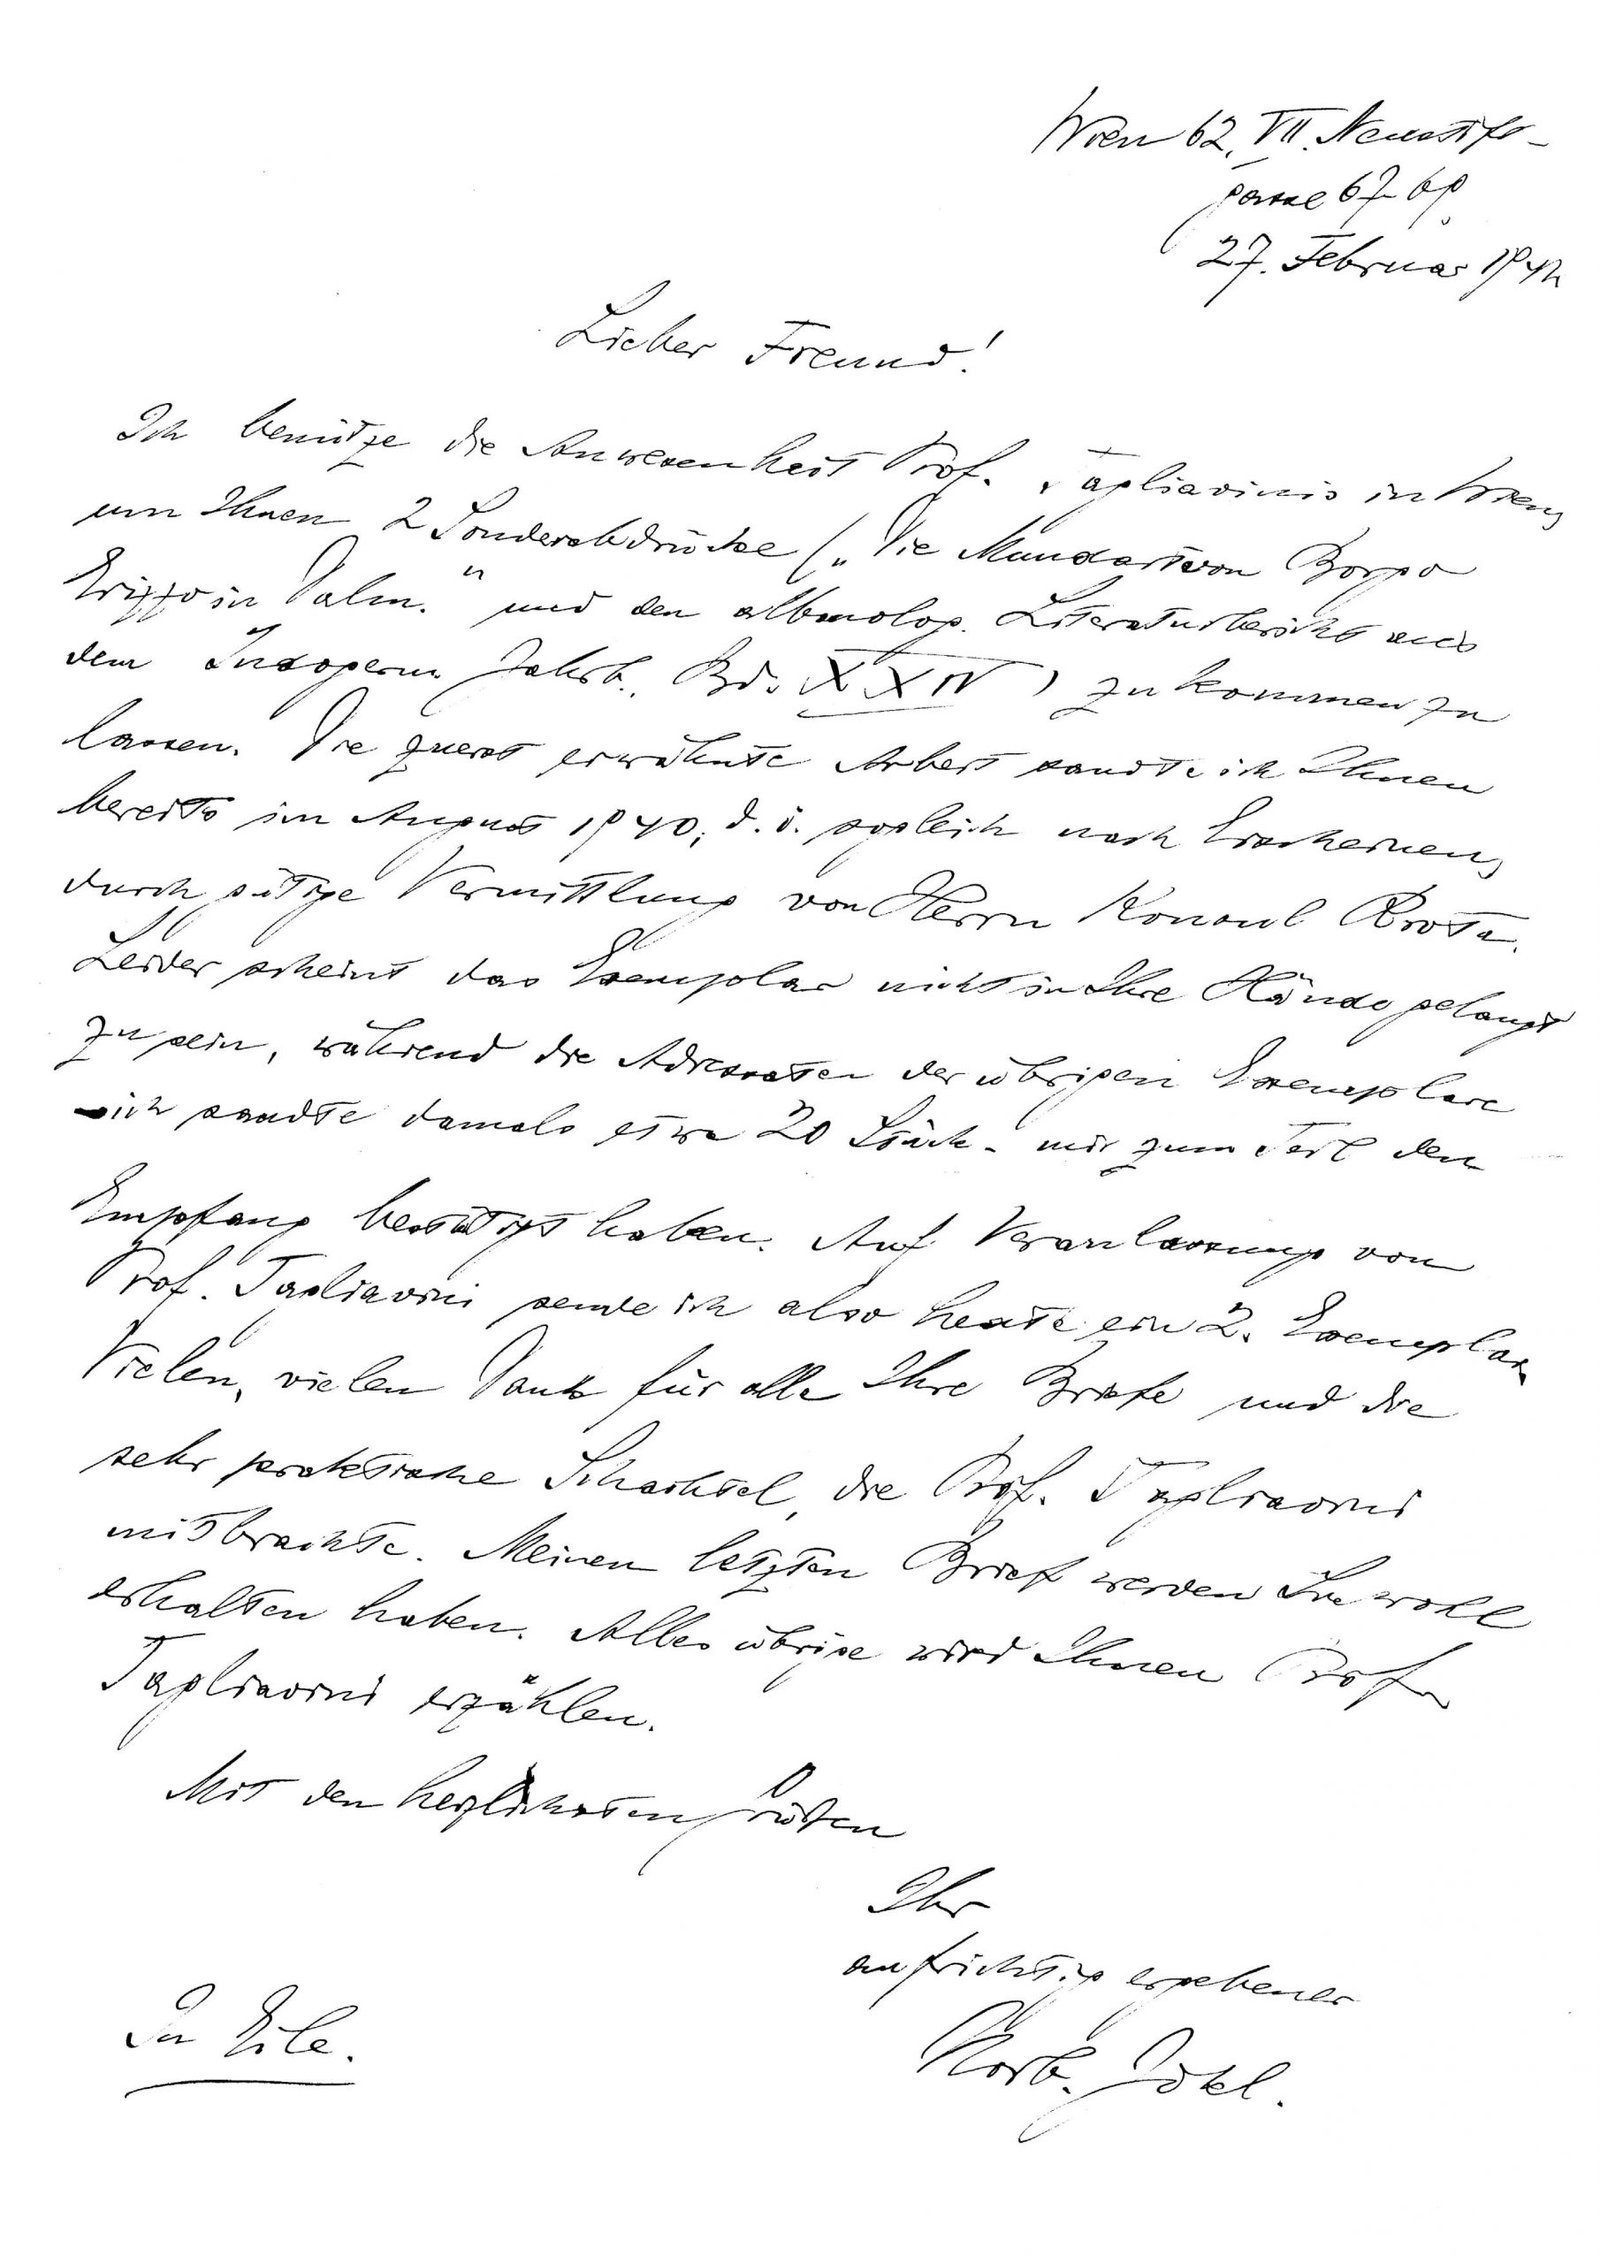 Wien 62, VII. Neustift-
gasse 67-69
27. Februar 1942
Lieber Freund!
Ich benütze die Anwesenheit Prof. Tagliavinis in Wien,
um Ihnen 2 Sonderabdrücke („Die Mundart von Borgo
Erizzo in Dalm." und den albanolog. Literaturbericht aus
dem Indogerm. Jahrb., Bd. XXIV) zukommen zu
lassen. Die zuerst erwähnte Arbeit sandte ich Ihnen
bereits im August 1940, d. i. sogleich nach Erscheinen,
durch gütige Vermittlung von Herrn Konsul Rrota.
Leider scheint das Exemplar nicht in Ihre Hände gelangt
zu sein, während die Adressaten der übrigen Exemplare
– ich sandte damals etwa 20 Stück – mir zum Teil den
Empfang bestätigt haben. Auf Veranlassung von
Prof. Tagliavini sende ich also heute ein 2. Exemplar.
Vielen, vielen Dank für alle Ihre Briefe und die
sehr praktische Schachtel, die Prof. Tagliavini
mitbrachte. Meinen letzten Brief werden Sie wohl
erhalten haben. Alles übrige wird Ihnen Prof.
Tagliavini erzählen.
Mit den herzlichsten Grüßen
Ihr
aufrichtig ergebener
Norb. Jokl.
In Eile.